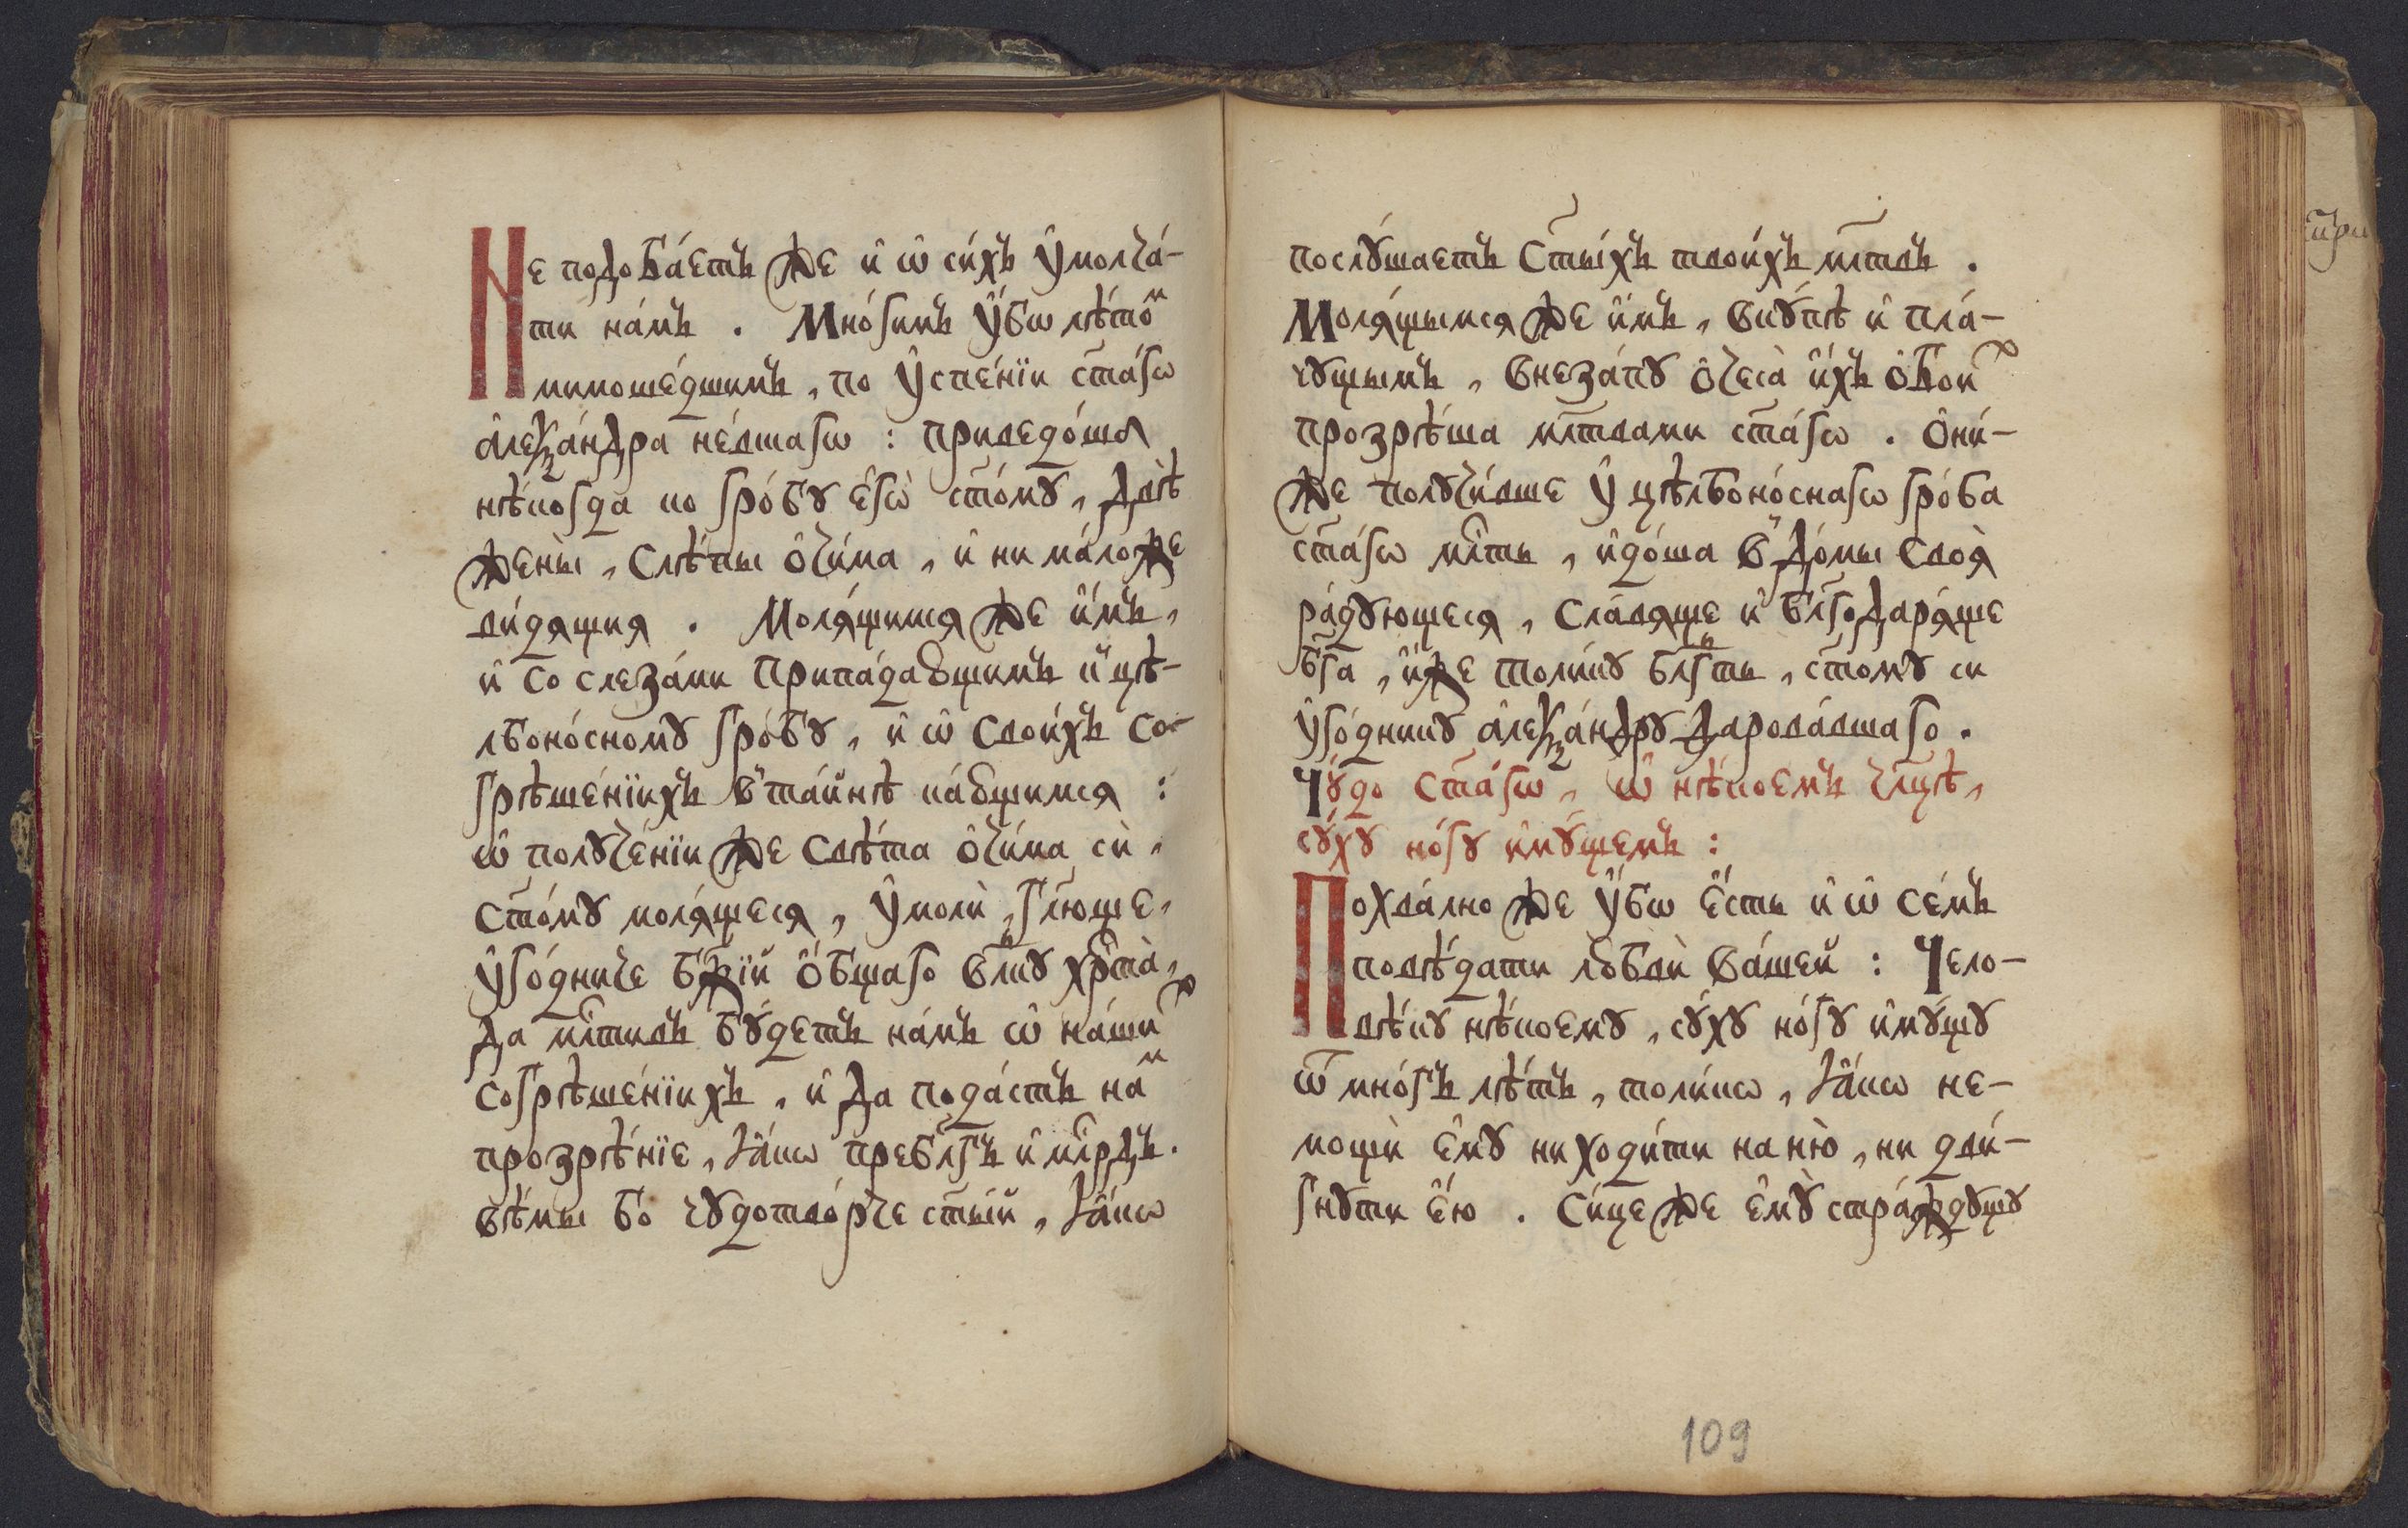 Не подоба́етъ же и҆ ѡ҆ си́хъ ᲂу҆молча́-
ти на́мъ . Мно́гимъ ᲂу҆́бѡ лѣ́тоⷨ
мимоше́дшимъ , по ᲂу҆спе́нїи ст҃а́гѡ
а҆леѯа́ндра не́вшагѡ : приведо́ша
нѣ́когда ко гро́бꙋ є҆гѡ̀ ст҃о́мꙋ , двѣ̀
жены̀ , слѣ́пы ѻ҆чи́ма , и҆ ни ма́ло же
ви́дящия . Моля́щимся же и҆̀мъ ,
и҆ со слеза́ми припа́дающимъ к̾ цѣ-
лбоно́сномꙋ гро́бꙋ , и҆ ѡ҆ свои́хъ со-
грѣше́нїихъ в̾ та́йнѣ ка́ющимся :
ѡ҆ полꙋче́нїи же свѣ́та ѻ҆чи́ма сѝ ,
ст҃о́мꙋ моля́щеся , ᲂу҆молѝ , гл҃юще ,
ᲂу҆го́дниче бж҃їй ѻ҆́бщаго влⷣкꙋ хрⷭ҇та̀ ,
да млⷭ҇тивъ бꙋ́детъ на́мъ ѡ҆ на́шиⷯ
согрѣше́нїихъ , и҆ да пода́стъ на́ⷨ
прозрѣ́нїе , ꙗ҆́кѡ пребл҃гъ и҆ млⷭ҇рдъ .
вѣ́мы бо чꙋдотво́рче ст҃ы́й , ꙗ҆́кѡ
послꙋ́шаетъ ст҃ы́хъ твои́хъ млⷭ҇твъ .
Моля́щымся же и҆̀мъ , вкꙋ́пѣ и҆ пла́-
чꙋщымъ , внеза́пꙋ ѻ҆чеса̀ и҆́хъ ѻ҆бои́ⷯ
прозрѣ́ша млⷭ҇твами ст҃а́гѡ . Ѻ҆ни́-
же полꙋчи́вше ᲂу҆ цѣлбоно́снагѡ гро́ба
ст҃а́гѡ млⷭ҇ть , и҆до́ша в̾ до́мы своѧ̀
ра́дꙋющеся , сла́вяще и҆ бл҃годаря́ще
бг҃а , и҆́же толи́кꙋ бл҃гⷭ҇ть , ст҃о́мꙋ си
ᲂу҆го́дникꙋ а҆леѯа́ндрꙋ дарова́вшаго .
Чꙋ́до ст҃а́гѡ , ѡ҆ нѣ́коемъ чл҃цѣ ,
сꙋ́хꙋ но́гꙋ и҆мꙋ́щемъ :
Похва́лно же ᲂу҆́бѡ є҆́сть и҆ ѡ҆ се́мъ
повѣ́дати любвѝ ва́шей : Чело-
вѣ́кꙋ нѣ́коемꙋ , сꙋ́хꙋ но́гꙋ и҆мꙋ́щꙋ
ѿ мно́гъ лѣ́тъ , толи́кѡ , ꙗ҆́кѡ не-
мощѝ є҆мꙋ̀ ни ходи́ти на ню̀ , ни дви́-
гнꙋти є҆́ю . Си́це же є҆мꙋ̀ стра́ждꙋщꙋ
109